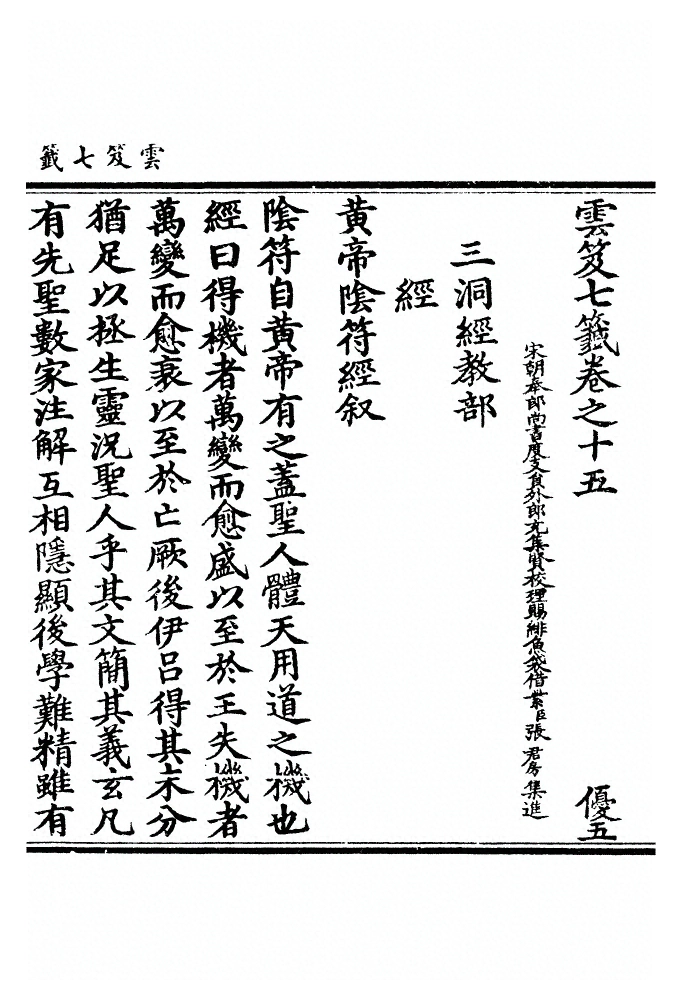 雲笈七籤
雲笈七籤卷之十五
優五
宋朝奉郎尚書度支員外郎充集賢校理賜緋魚袋借紫臣張君房集進
三洞經教部
經
黃帝陰符經叙
陰符自黃帝有之蓋聖人體天用道之機也
經曰得機者萬變而愈盛以至於王失機者
萬變而愈衰以至於亡厥後伊吕得其末分
猶足以拯生靈況聖人乎其文簡其義玄凡
有先聖數家注解互相隱顯後學難精雖有